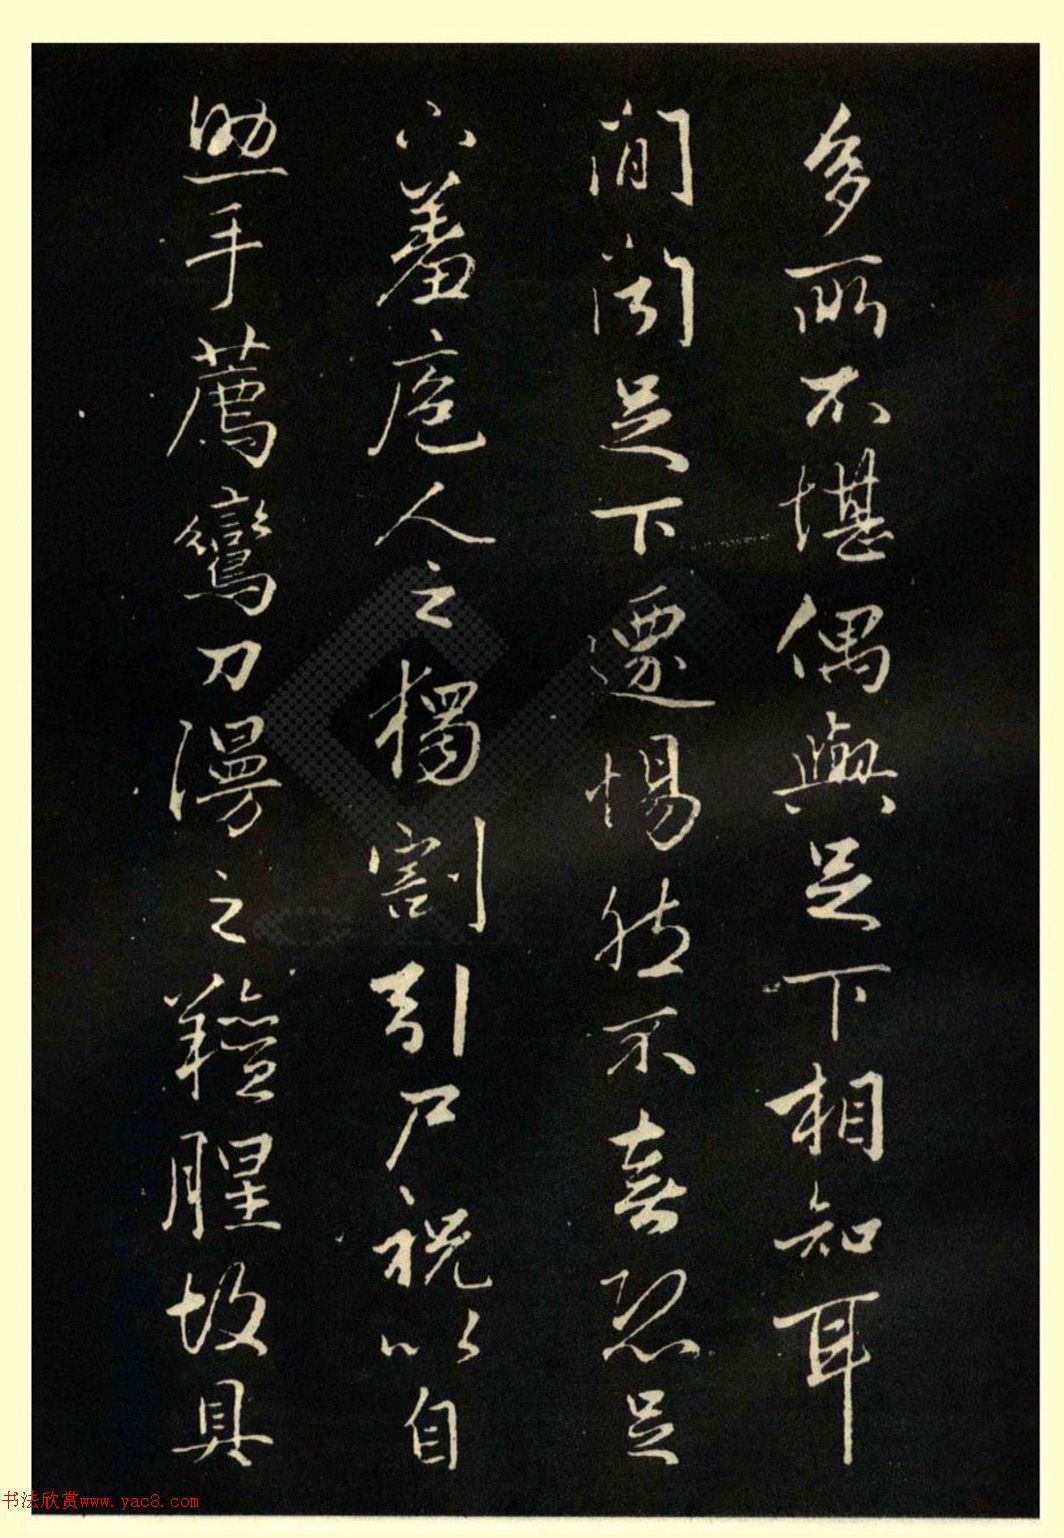 多所不堪偶與足下相知耳
間聞足下遷惕然不喜恐足
下羞庖人之獨割引尸祝以自
助手薦鸞刀漫之羶腥故具
书法欣赏www.yac8.com